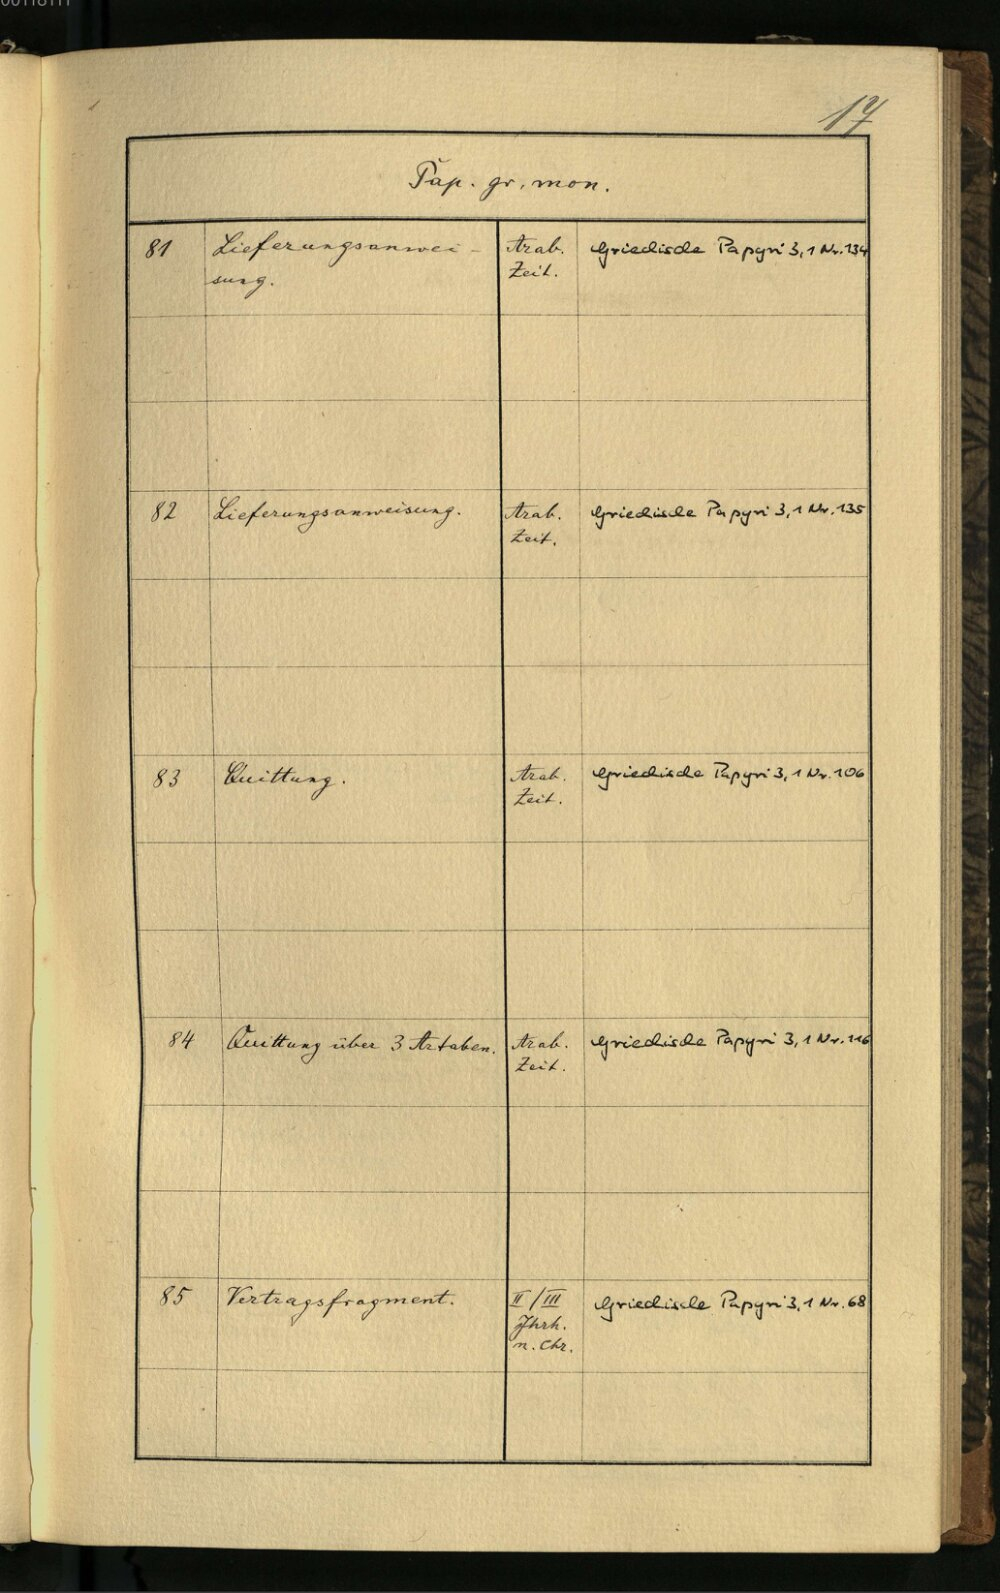 17
Pap. gr. mon.
81 Lieferungsanwei- Arab. Griechische Papyri 3,1 Nr. 134
sung. Zeit.
82 Lieferungsanweisung. Arab. Griechische Papyri 3,1 Nr. 135
Zeit.
83 Quittung. Arab. Griechische Papyri 3,1 Nr. 106
Zeit.
84 Quittung über 3 Artaben. Arab. Griechische Papyri 3,1 Nr. 116
Zeit.
85 Vertragsfragment. II/III Griechische Papyri 3,1 Nr. 68
Jhrh.
n. Chr.